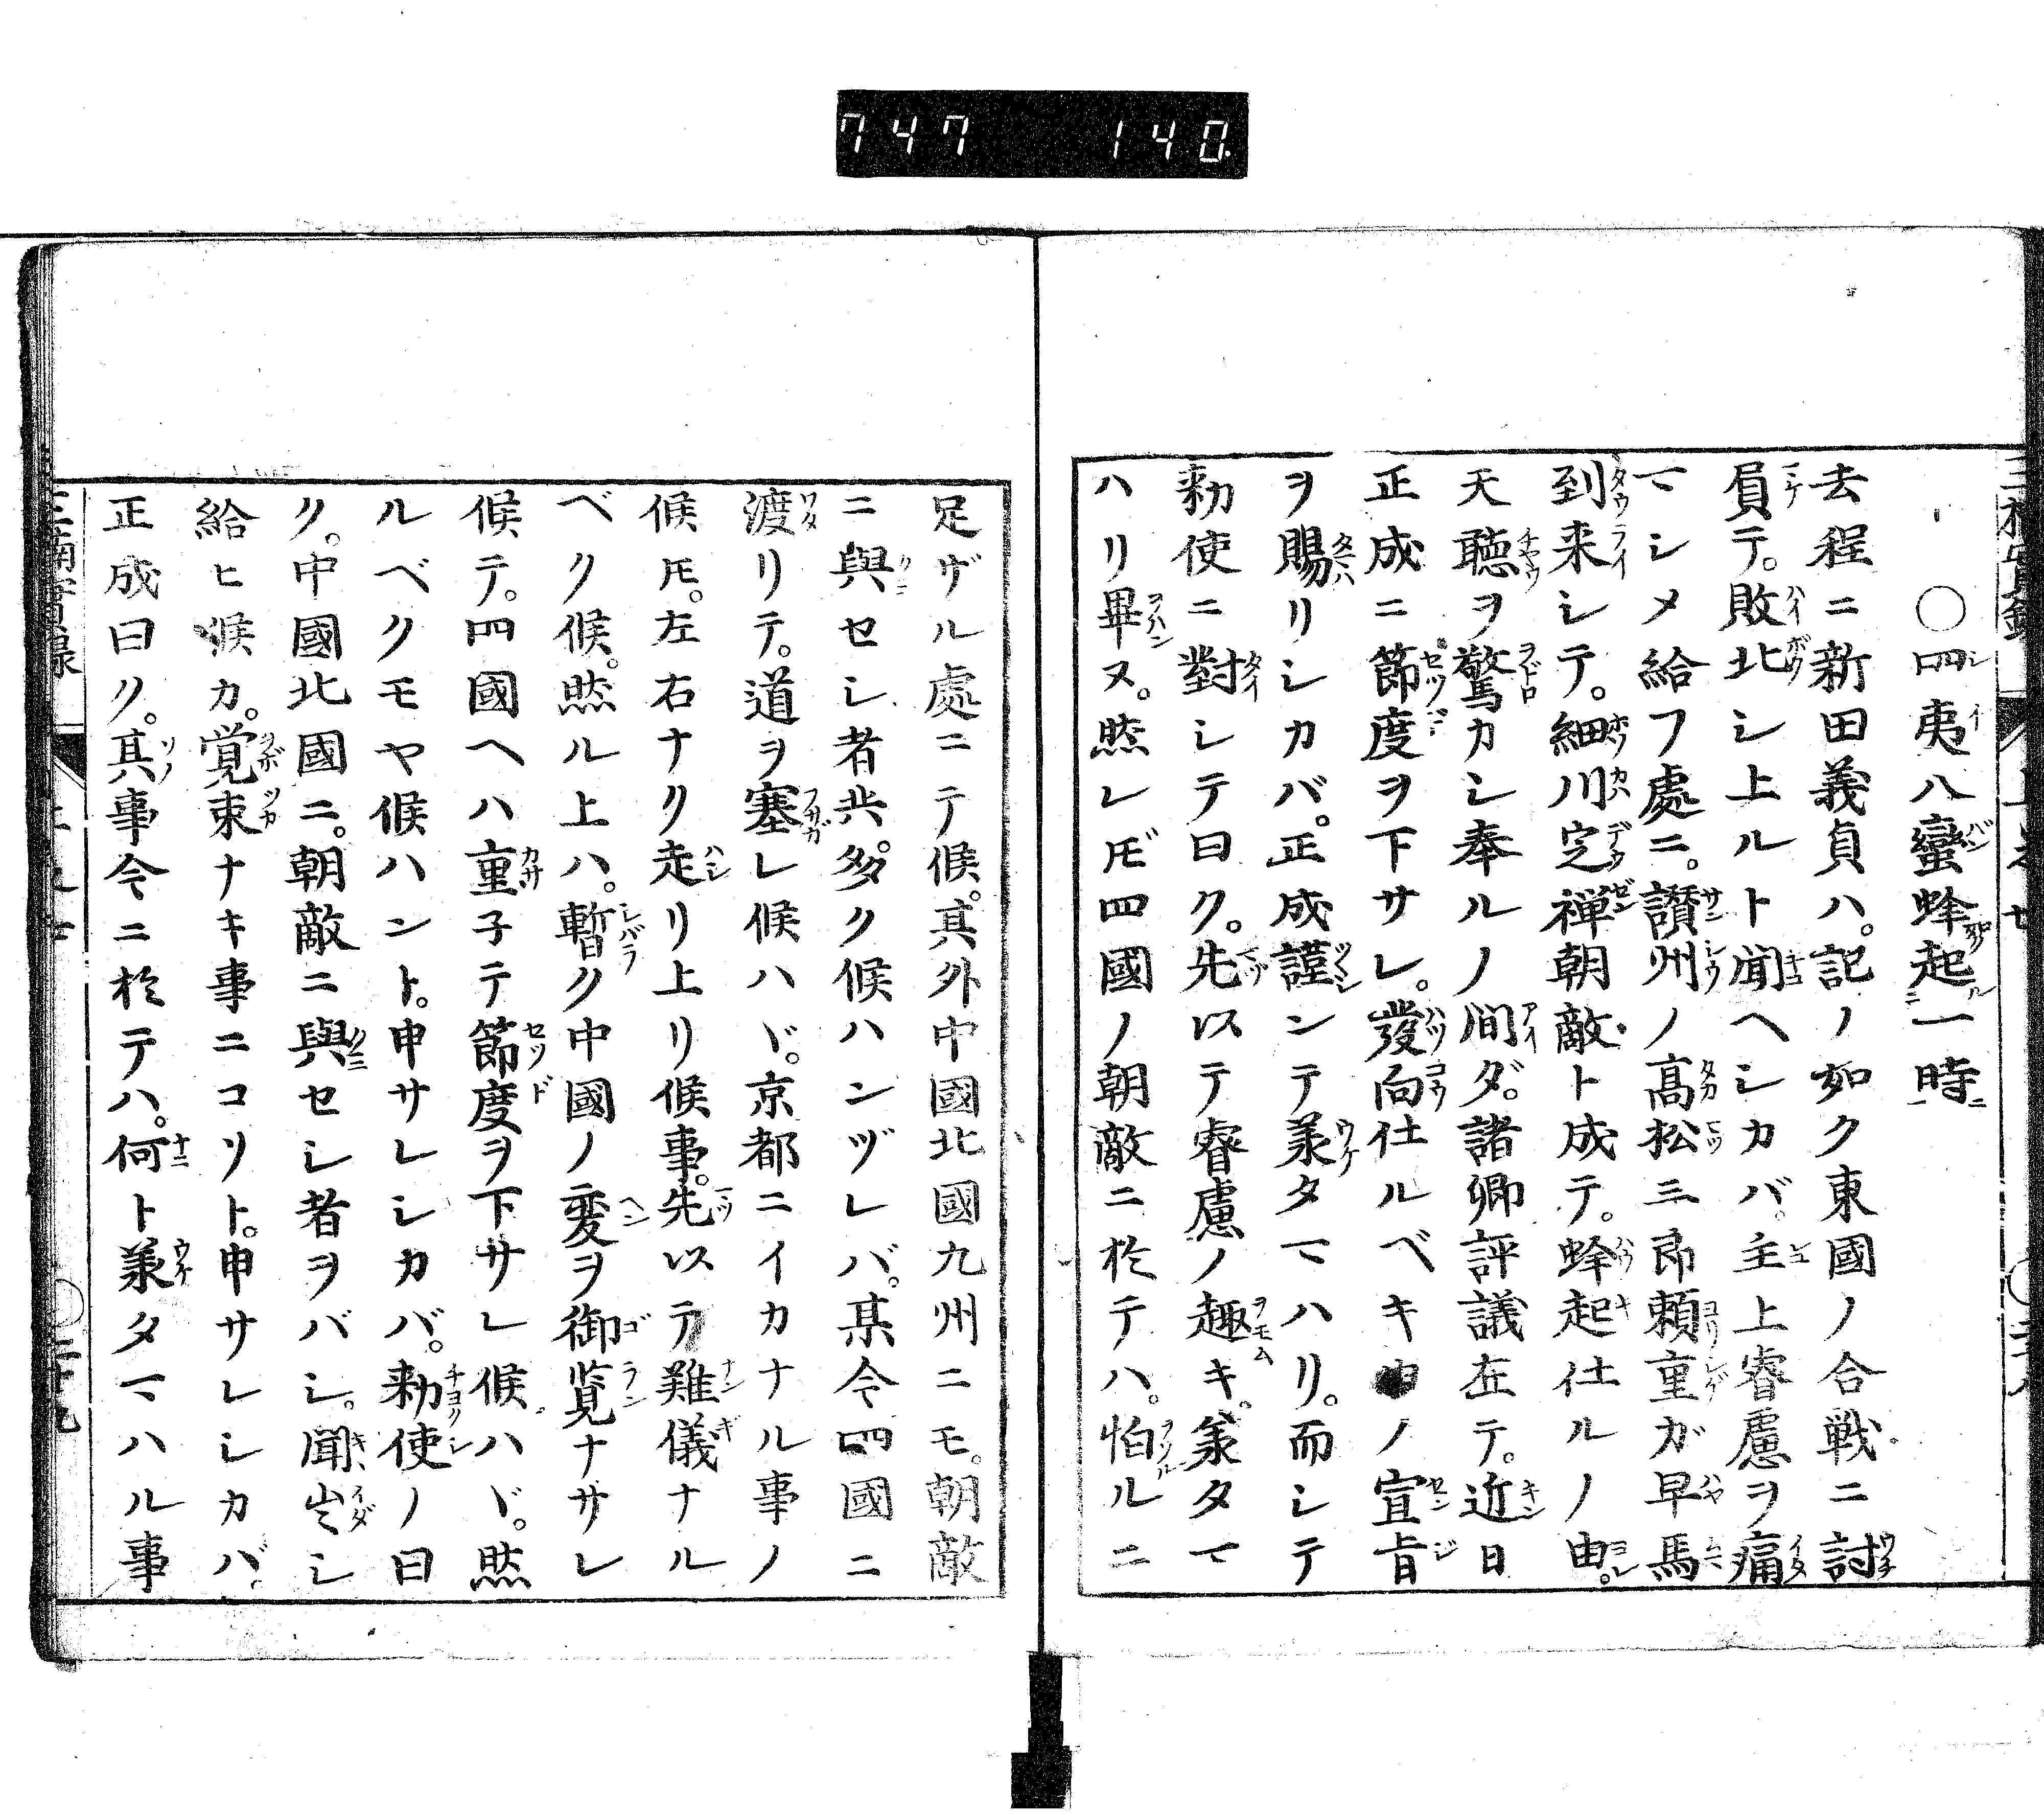 747 140
〇四夷八蠻蜂起一時
去程ニ新田義貞ハ。記ノ如ク東國ノ合戦ニ討
負テ。敗北シ上ルト聞ヘシカバ。主上睿慮ヲ痛
マシメ給フ處ニ。讃州ノ髙松三郎頼重ガ早馬
到来シテ。細川定禅朝敵ト成テ。蜂起仕ルノ由。
天聴ヲ驚カシ奉ルノ間ダ。諸卿評議在テ。近日
正成ニ節度ヲ下サレ。發向仕ルベキ由ノ宣旨
ヲ賜リシカバ。正成謹ンテ羕タマハリ。而シテ
勅使ニ對シテ曰ク。先以テ睿慮ノ趣キ。羕タマ
ハリ畢ヌ。然レ𪜈四國ノ朝敵ニ於テハ。怕ルニ
足ザル處ニテ候。其外中國北國九州ニモ。朝敵
ニ與セシ者共。多ク候ハンヅレバ。某今四國ニ
渡リテ。道ヲ塞レ候ハヾ。京都ニイカナル事ノ
候𪜈。左右ナク走リ上リ候事。先以テ難儀ナル
ベク候。然ル上ハ。暫ク中國ノ変ヲ御覧ナサレ
候テ。四國ヘハ重子テ節度ヲ下サレ候ハヾ。然
ルベクモヤ候ハント。申サレシカバ。勅使ノ曰
ク。中國北國ニ。朝敵ニ與セシ者ヲバシ。聞出シ
給ヒ候カ。覚束ナキ事ニコソト。申サレシカバ。
正成曰ク。其事今ニ於テハ。何ト羕タマハル事